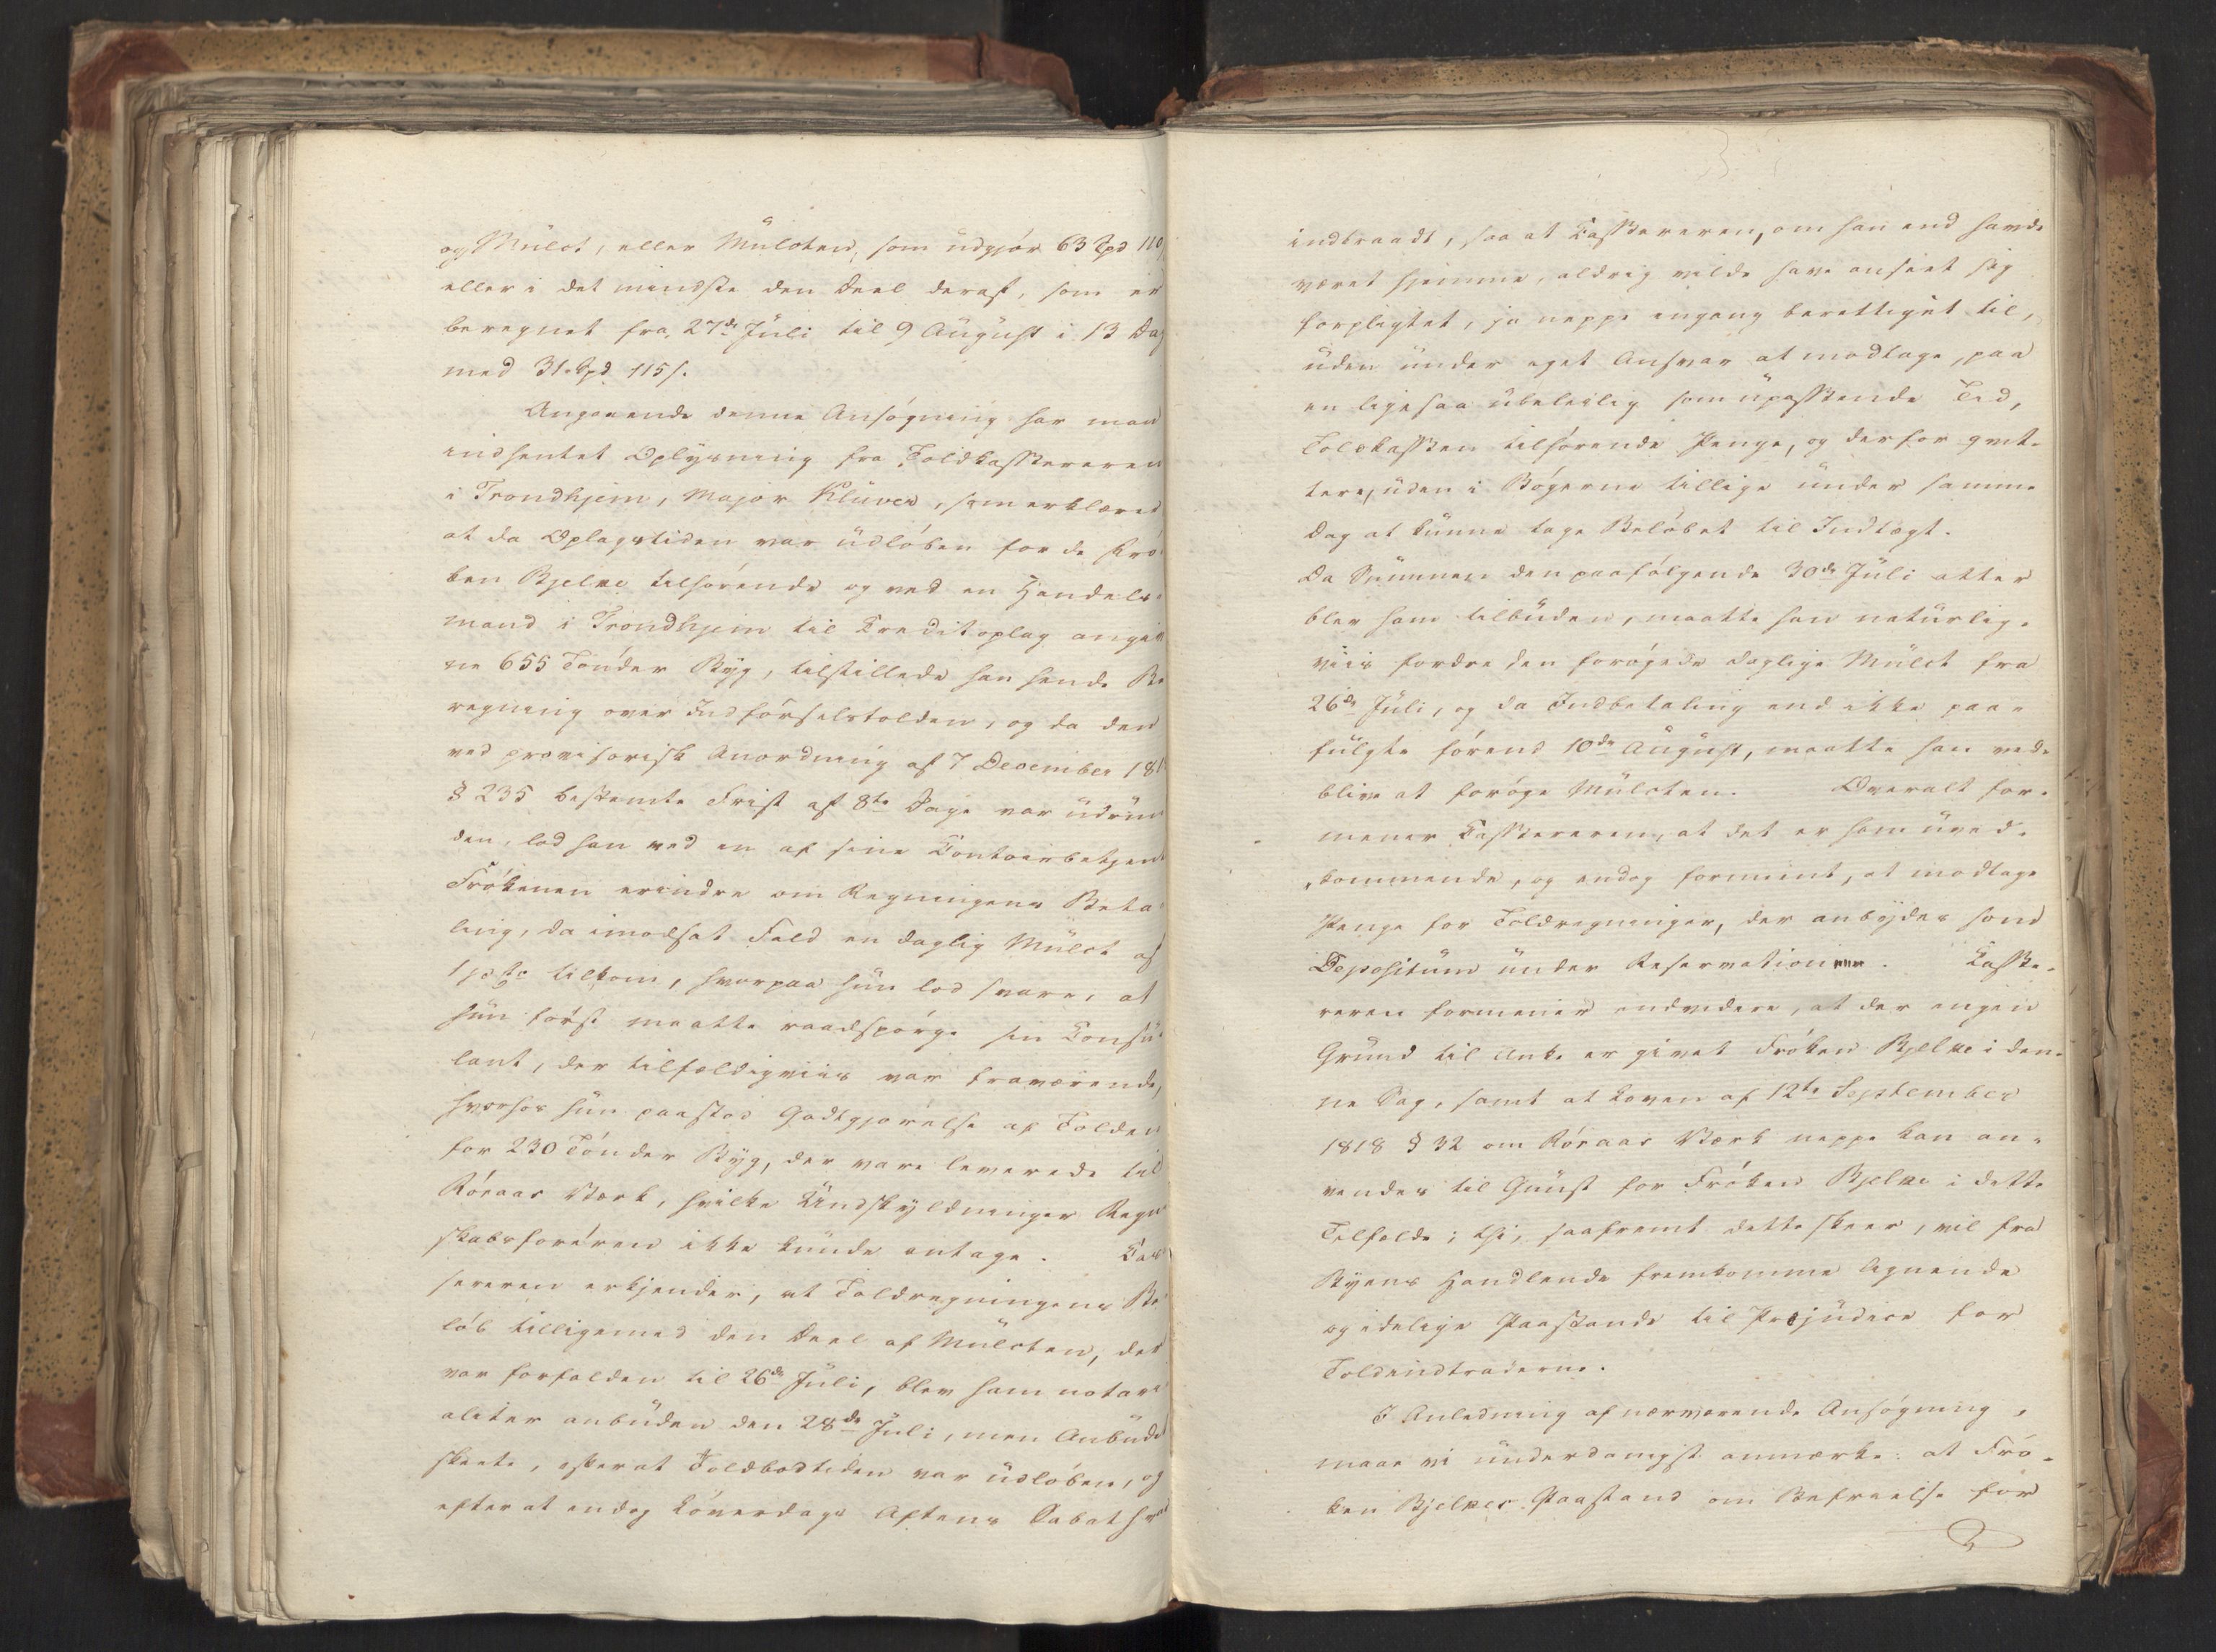 og Mulct, eller Mulcten, som udgjør 63 Spd 110
eller i det mindste den Deel deraf, som er
beregnet fra 27de Juli til 9 August i 13 Dag
med 31 Spd 115 s.
Angaaende denne Ansøgning har man
indhentet Oplysning fra Toldkassereren
i Trondhjem, Major Klüwer, som erklærer
at da Oplagstiden var udløben for de Frø-
ken Bjelke tilhørende og ved en Handels-
mand i Trondhjem til Creditoplag angiv
ne 655 Tønder Byg, tilstillede han hende Be
regning over Indførselstolden, og da den
ved provisorisk Anordning af 7 December 181
§ 235 bestemte Frist af 8te Dage var udrun
den, lod han ved en af sine Contoirbetjent
Frøkenen erindre om Regningens Beta-
ling, da imodsat Fald en daglig Mulct af
1 pCto tilkom, hvorpaa hun lod svare, at
hun først maatte raadspørge sin Consu-
lent, der tilfældigviis var fraværende,
hvorhos hun paastod Godtgjørelse af Tolden
for 230 Tønder Byg, der vare leverede til
Røraas Værk, hvilke Undskyldninger Regn
skabsføreren ikke kunde antage. Cas
sereren erkjender, at Toldregningens Be
løb tilligemed den Deel af Mulcten, der
var forfalden til 26de Juli, blev ham notari
aliter anbuden den 28de Juli, men Anbudet
skeete, efterat Toldbodtiden var udløben, og
efter at endog Løverdags Aftens Sabat hvar
indbraadt, saa at Cassereren, om han end havde
været hjemme, aldrig vilde have anseet sig
forpligtet, ja neppe engang berettiget til,
uden under eget Ansvar at modtage, paa
en ligesaa ubeleilig som upassende Tid,
Toldkassen tilhørende Penge, og derfor qvit-
tere, uden i Bøgerne tillige under samme
Dag at kunne tage Beløbet til Indtægt.
Da Summen den paafølgende 30de Juli atter
blev ham tilbuden, maatte han naturlig-
viis fordre den forøgede daglige Mulct fra
26de Juli, og da Indbetaling end ikke paa-
fulgte førend 10de August, maatte han ved-
blive at forøge Mulcten. Overalt for-
mener Cassereren, at det er ham uved-
kommende, og endog formeent, at modtage
Penge for Toldregninger, der anbydes som
Depositum under Reservationer. Casse-
reren formener endvidere, at der ingen
Grund til Anke er givet Frøken Bjelke i den-
ne Sag, samt at Loven af 12te September
1818 § 32 om Røraas Værk neppe kan an-
vendes til Gunst for Frøken Bjelke i dette
Tilfælde; thi, saafremt dette skeer, vil fra
Byens Handlende fremkomme lignende
og idelige Paastande til Præjudice for
Toldindtraderne.
I Anledning af nærværende Ansøgning,
maae vi underdanigst anmærke: at Frø-
ken Bjelkes Paastand om Befrielse for